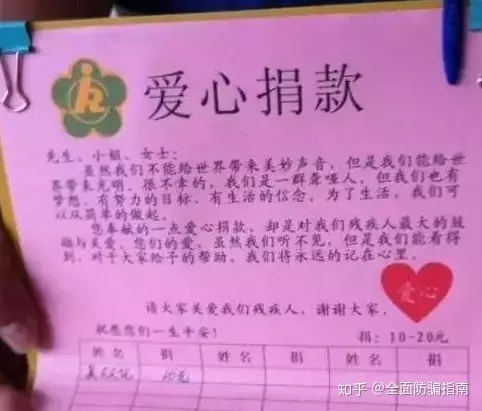 爱心捐款
先生、小姐、女士:
虽然我们不能给世界带来美妙声音，但是我们能给世
界带来光明。很不幸的，我们是一群聋哑人，但我们也有
梦想，有努力的目标，有生活的信念，为了生活，我们可
以从简单的做起。
您奉献的一点爱心捐款，却是对我们残疾人最大的鼓
励与关爱，您们的爱，虽然我们听不见，但是我们能看得
到，对于大家给予的帮助，我们将永远的记在心里。
爱心
请大家关爱我们残疾人，谢谢大家。
祝愿您们一生平安!
捐：10-20元
姓名 捐 姓名 捐 姓名 捐
10元
知乎 @全面防骗指南